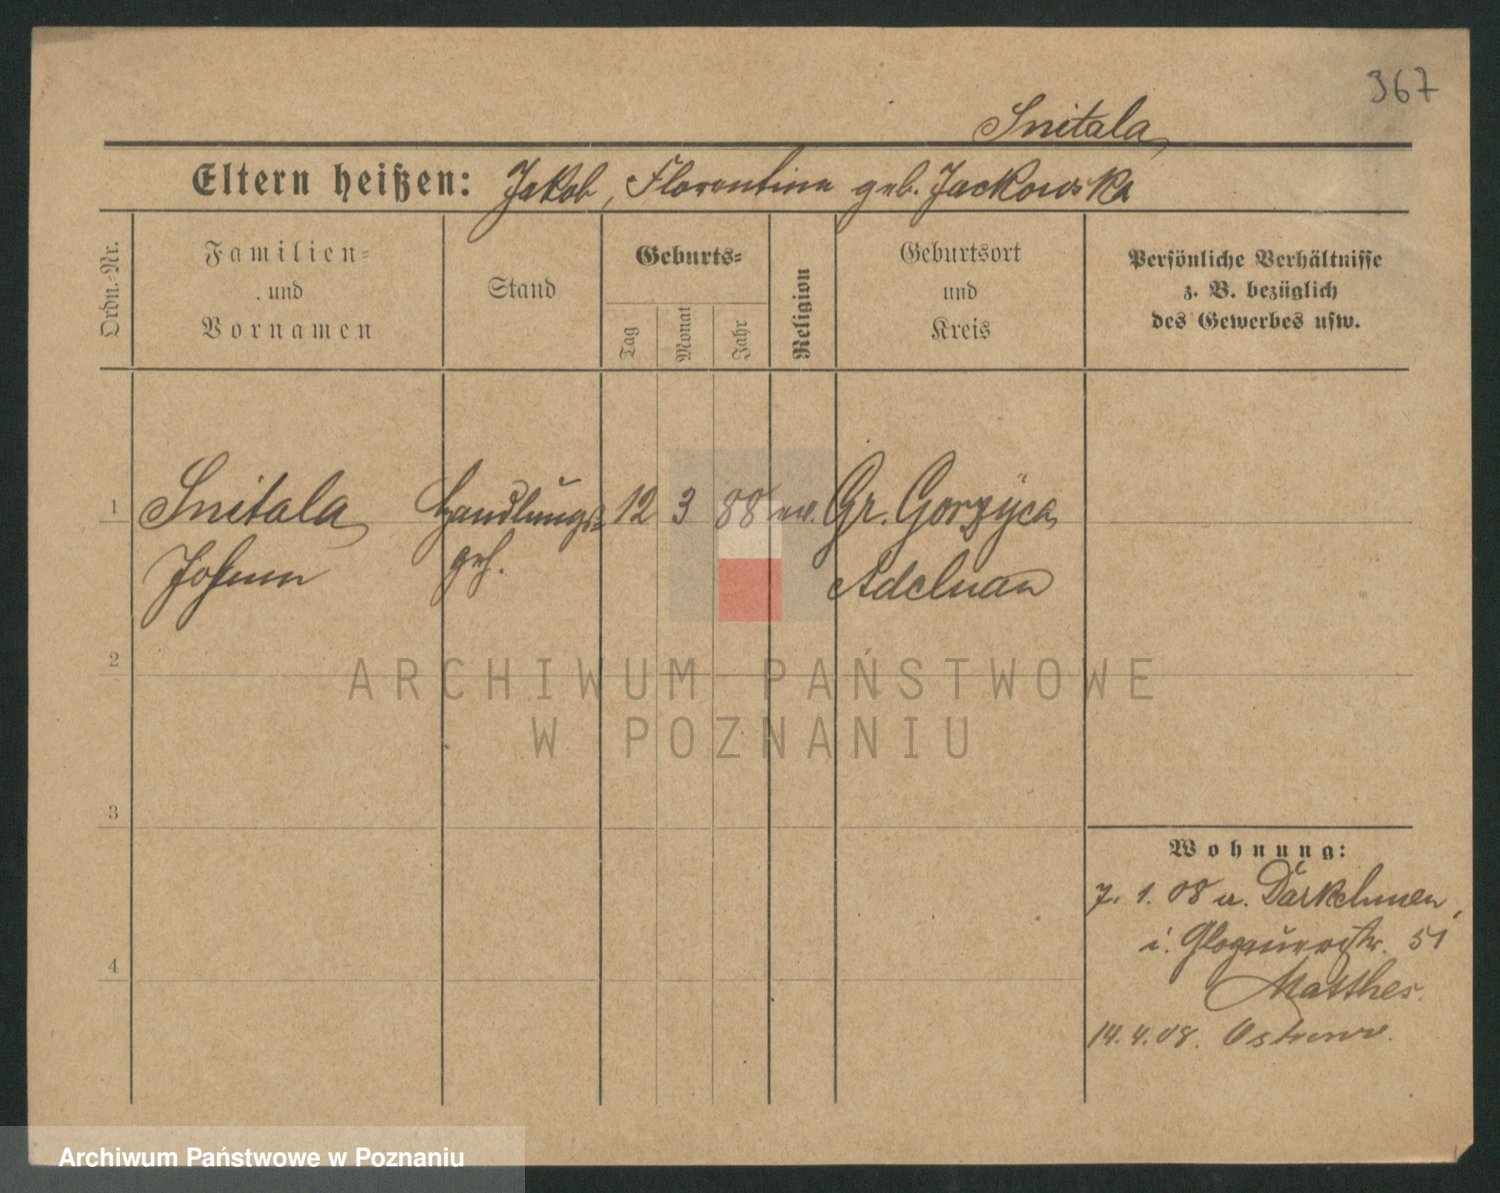 367
Snitala
Eltern heißen: Jakob, Florentina geb. Jackowska
Ordn.-Nr.
Familien-
und
Vornamen
Stand
Geburts-
Tag
Monat
Jahr
Religion
Geburtsort
und
Kreis
Persönliche Verhältnisse
z. B. bezüglich
des Gewerbes usw.
1 Snitala Handlungs- 12 3 88 Gr. Gorzyca
Johann geh. Adelnau
2
ARCHIWUM PAŃSTWOWE
W POZNANIU
3
Wohnung:
7. 1. 08 a. Darkehmen,
i. Glogauerstr. 51
4
Matthes.
14.4.08. Ostrowo.
Archiwum Państwowe w Poznaniu